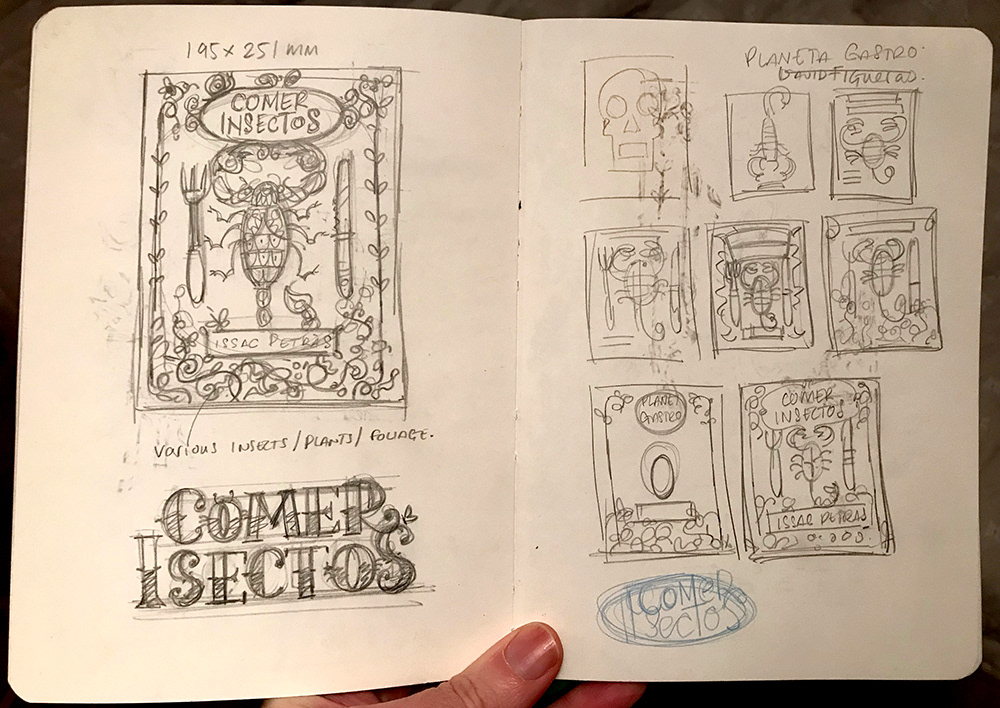 195 x 251 MM
COMER
INSECTOS
ISSAC PETRÀS
VARIOUS INSECTS/PLANTS/FOLIAGE.
COMER
ISECTOS
PLANETA GASTRO
DAVID FIGUERAS.
PLANET
GASTRO
COMER
INSECTOS
ISSAC PETRAS
COMER
SECTOS